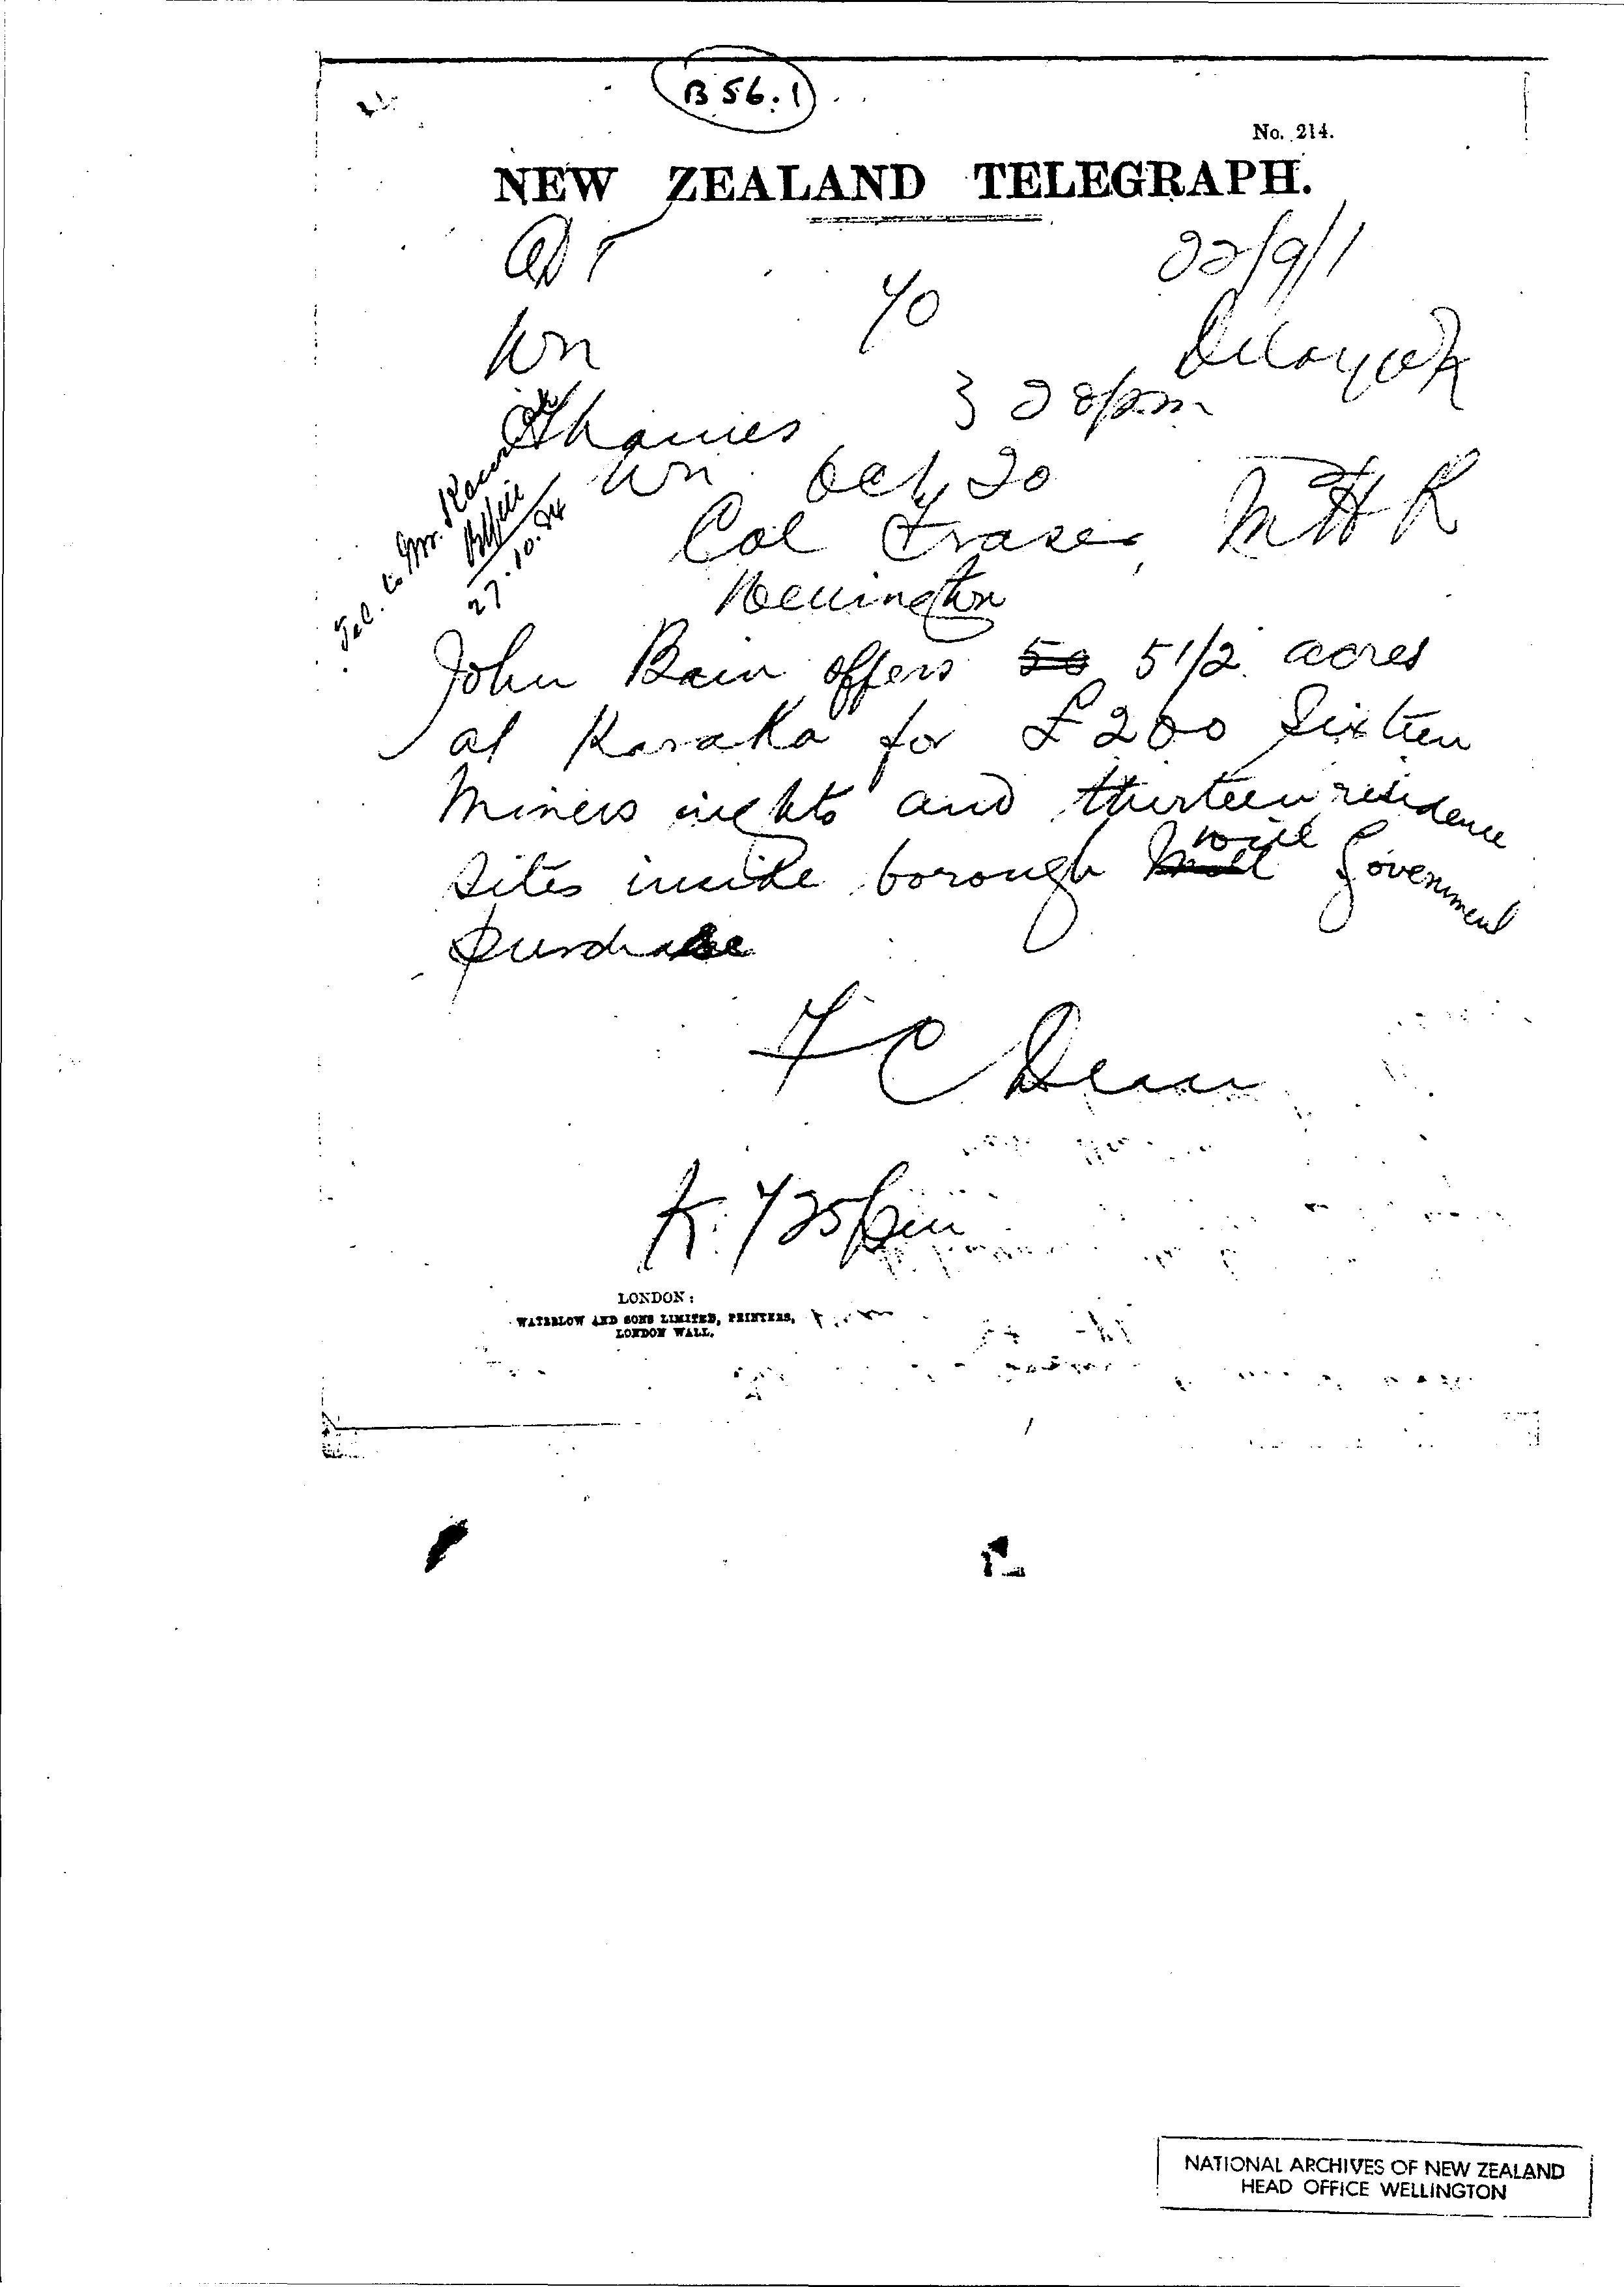 B 56.1
No. 214.
NEW ZEALAND TELEGRAPH.
22/9/1
Wn 40 Delay wk
Thames 3 20pm
Wn Oct 20
Col Fraser, M H R
Wellington
Tel. to Mr.
27.10.84
John Bain offers 50 5 1/2 acres
at Karaka for £200 Sixteen
Miners rights and thirteen residence
sites inside borough will Government
purchase
F C Dean
K. 725pm
LONDON:
WATERLOW AND SONS LIMITED, PRINTERS,
LONDON WALL.
NATIONAL ARCHIVES OF NEW ZEALAND
HEAD OFFICE WELLINGTON